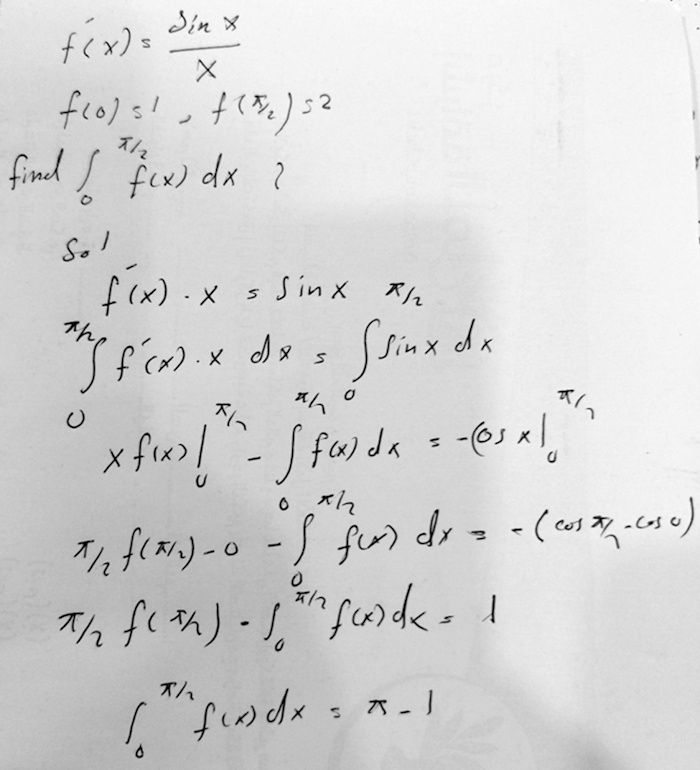 f'(x) = sin x / x
f(0) = 1 , f(π/2) = 2
find ∫₀^(π/2) f(x) dx ?
Sol
f'(x) . x = sin x
∫₀^(π/2) f'(x) . x dx = ∫₀^(π/2) sin x dx
x f(x) |₀^(π/2) - ∫₀^(π/2) f(x) dx = -cos x |₀^(π/2)
π/2 f(π/2) - 0 - ∫₀^(π/2) f(x) dx = - (cos π/2 - cos 0)
π/2 f(π/2) - ∫₀^(π/2) f(x) dx = 1
∫₀^(π/2) f(x) dx = π - 1